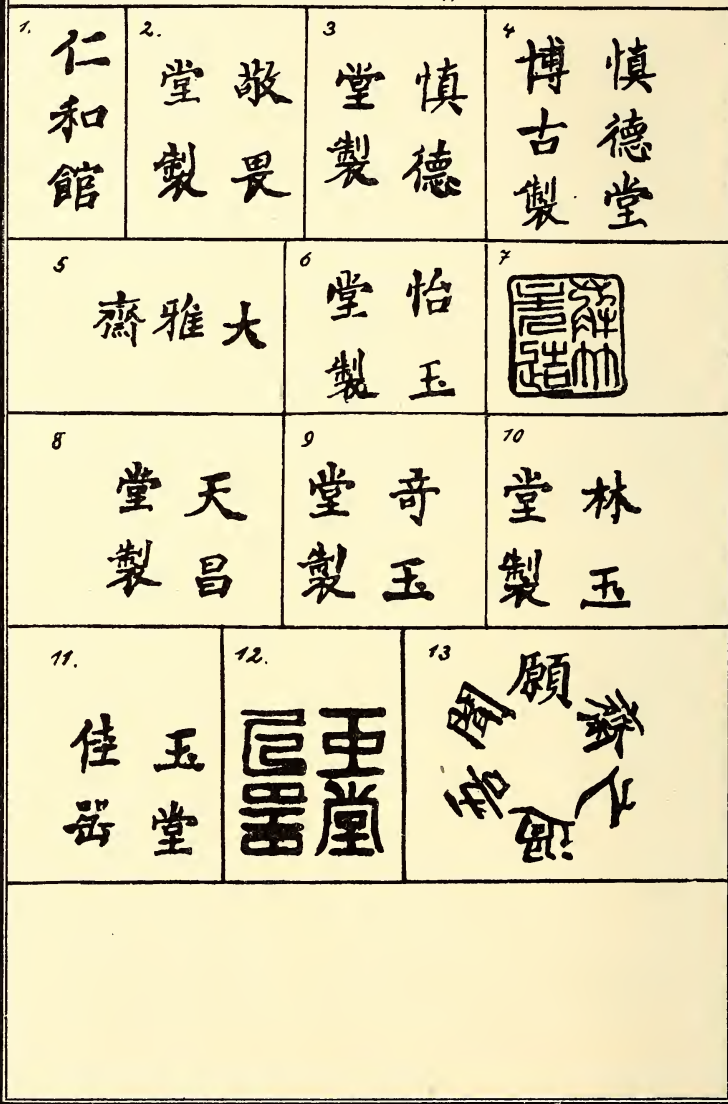 1.
仁和館
2.
敬畏
堂製
3
慎德
堂製
4
慎德堂
博古製
5
大雅齋
6
怡玉
堂製
7
8
天昌
堂製
9
奇玉
堂製
10
林玉
堂製
11.
玉堂
佳器
12.
玉堂
佳器
13
願聞吾過之齋